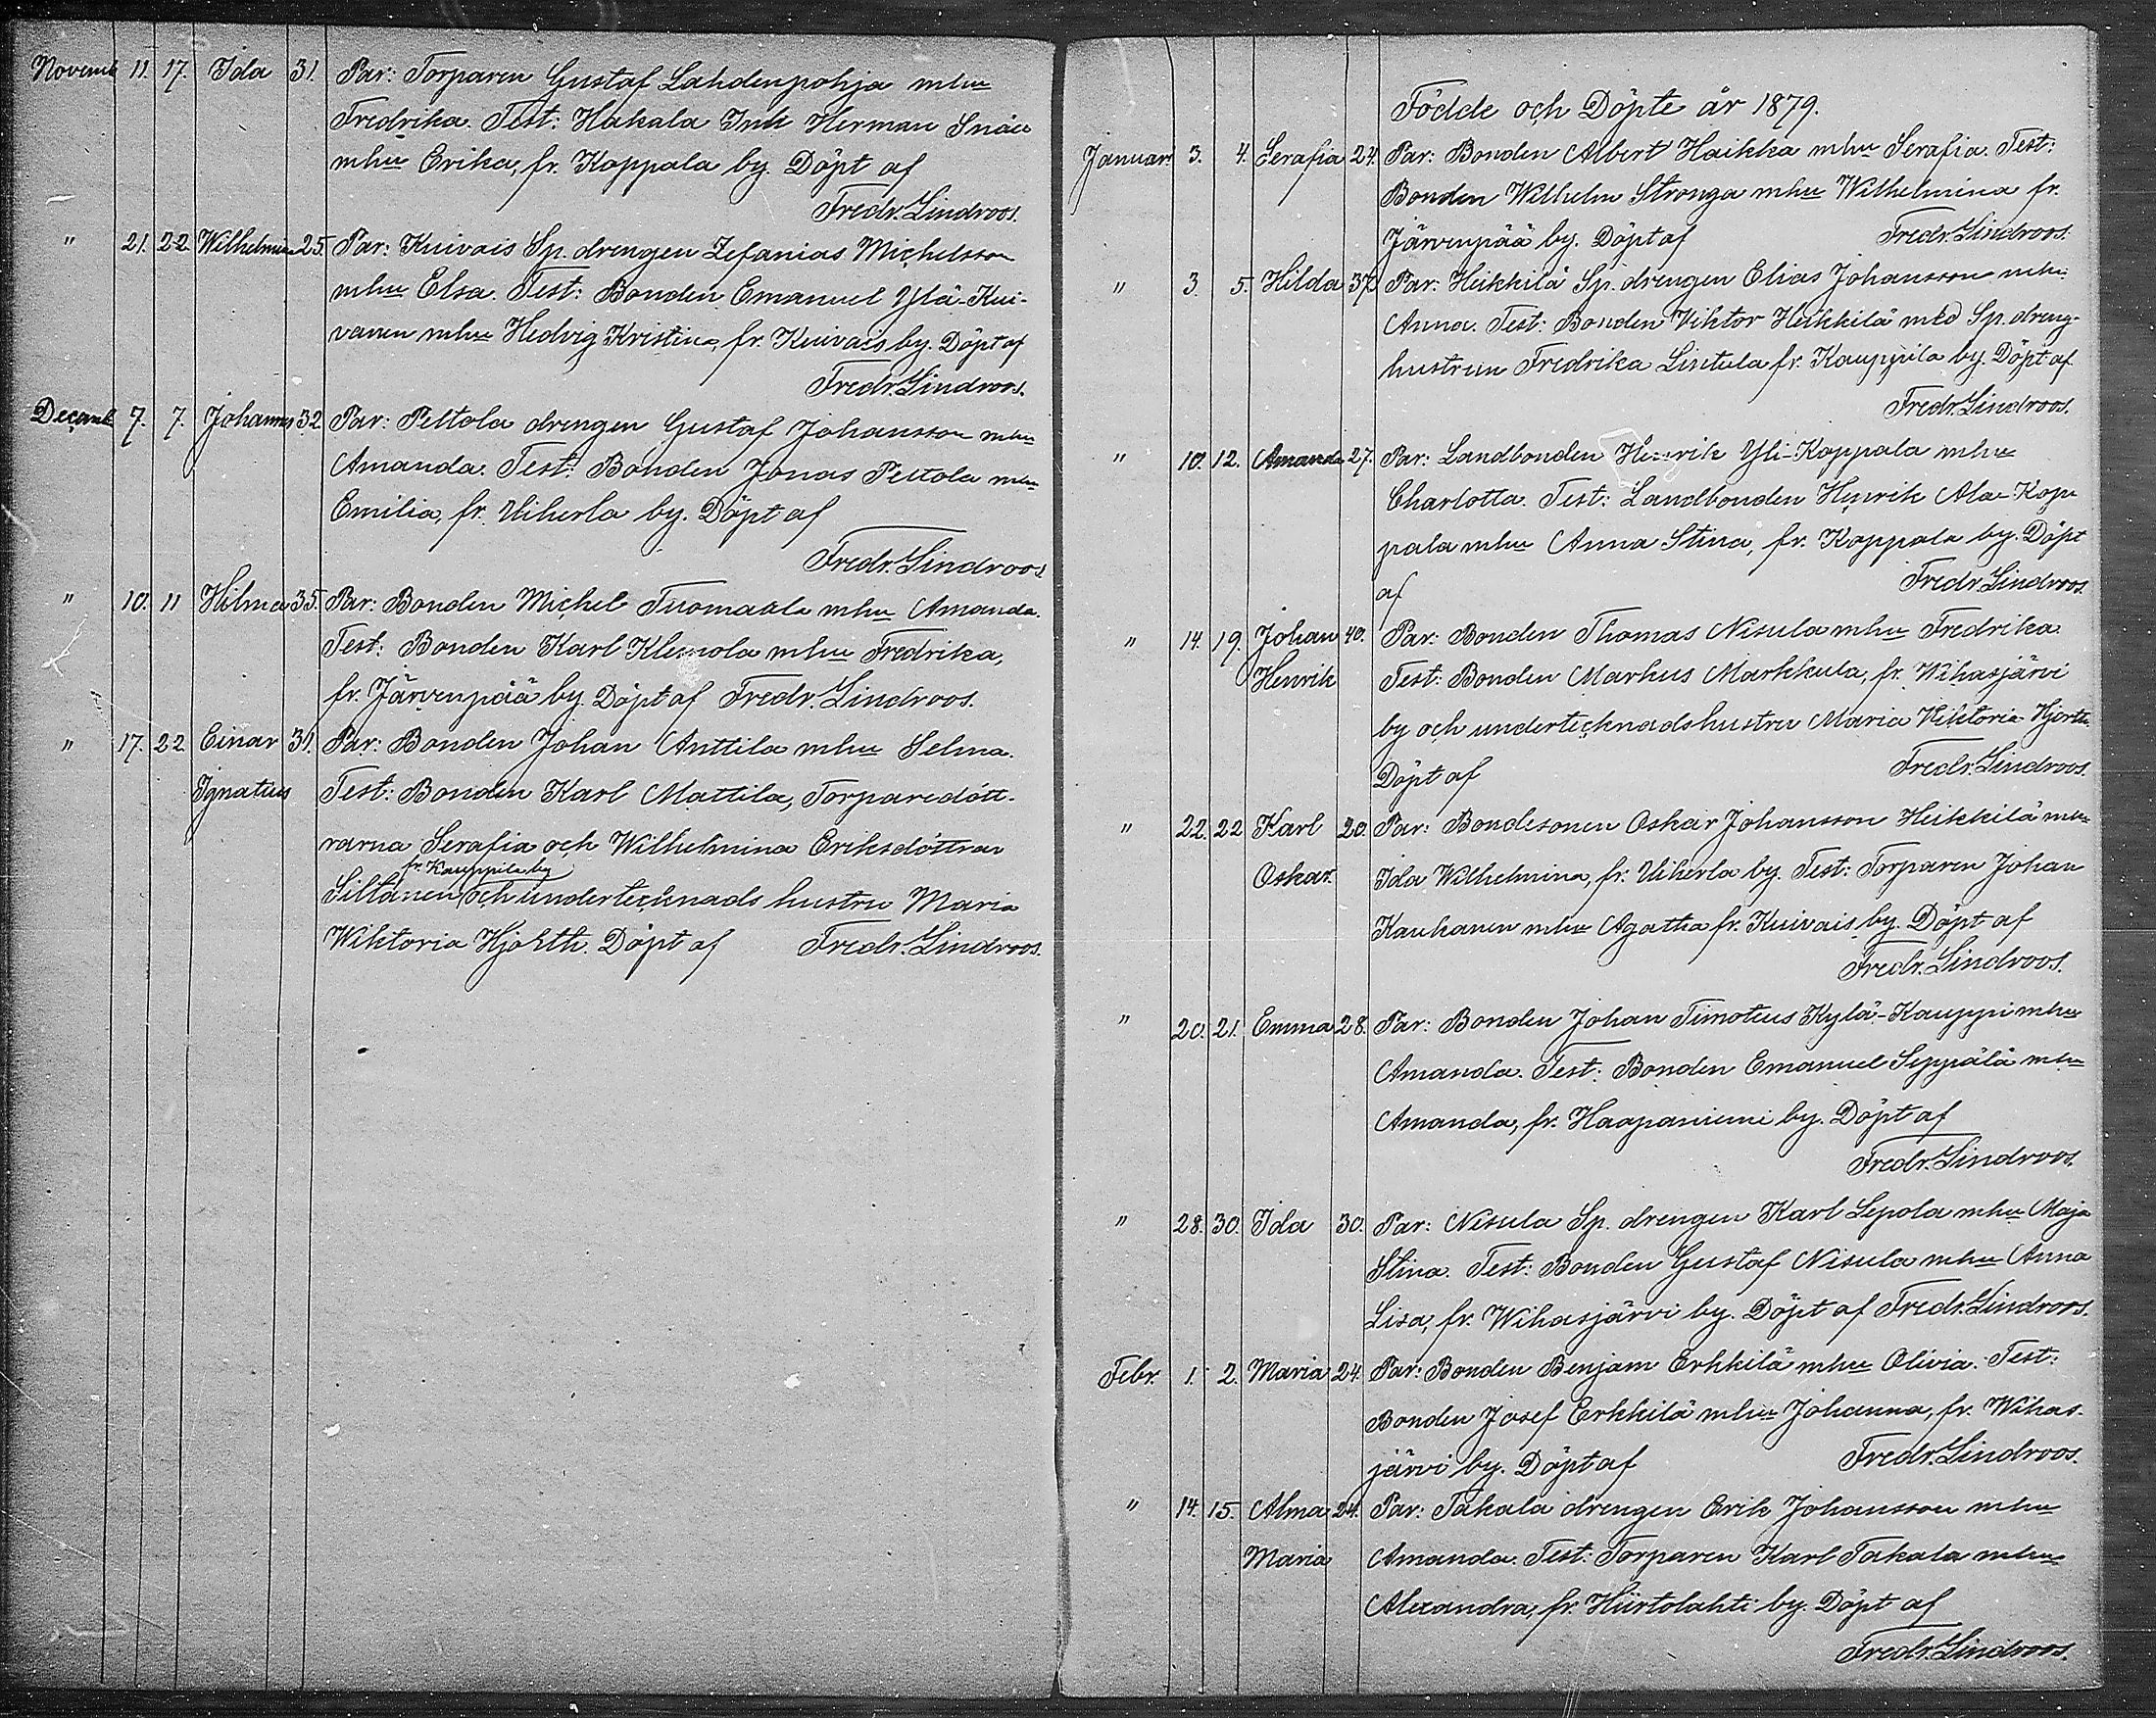 Novemb 11. 17. Ida 31. Par: Torparen Gustaf Lahdenpohja mhu
Fredrika. Test: Hakala Inh Herman Snäll
mhu Erika, fr. Koppala by. Döpt af
Fredr. Lindroos.
" 21. 22 Wilhelmina 25. Par: Kuivais Sp. drengen Zefanias Michelsson
mhu Elsa. Test: Bonden Emanuel Ylä-Kui-
vanen mhu Hedvig Kristina, fr. Kuivais by. Döpt af
Fredr. Lindroos.
Decemb 7. 7. Johannes 32 Par: Peltola drengen Gustaf Johansson mhu
Amanda. Test: Bonden Jonas Peltola mhu
Emilia, fr. Uiherla by. Döpt af
Fredr. Lindroos
" 10. 11 Hilma 35. Par: Bonden Michel Tuomaala mhu Amanda.
Test: Bonden Karl Klemola mhu Fredrika,
fr. Järvenpää by. Döpt af Fredr. Lindroos.
" 17. 22 Einar 31. Par: Bonden Johan Anttila mhu Selma.
Ignatius Test: Bonden Karl Mattila, Torparedött-
rarna Serafia och Wilhelmina Eriksdöttrar
fr. Kauppila by
Siltanen och undertecknads hustru Maria
Wiktoria Hjorth. Döpt af Fredr. Lindroos.
Födde och Döpte år 1879.
Januar 3. 4. Serafia 24. Par: Bonden Albert Haikka mhu Serafia. Test:
Bonden Wilhelm Stronga mhu Wilhelmina fr.
Järvenpää by. Döpt af Fredr. Lindroos.
" 3 5. Hilda 37. Par: Heikkilä Sp. drengen Elias Johansson mhu
Anna. Test: Bonden Viktor Heikkilä med Sp. dreng-
hustrun Fredrika Lintula fr. Kauppila by. Döpt af
Fredr. Lindroos.
" 10. 12. Amanda 27. Par: Landbonden Henrik Yli-Koppala mhu
Charlotta. Test: Landbonden Henrik Ala-Kop-
pala mhu Anna Stina, fr. Koppala by. Döpt
af Fredr. Lindroos.
" 14. 19. Johan 40. Par: Bonden Thomas Nisula mhu Fredrika.
Henrik Test: Bonden Markus Markkula, fr. Wihasjärvi
by och undertecknadshustru Maria Viktoria Hjorth.
Döpt af Fredr. Lindroos.
" 22. 22 Karl 20. Par: Bondesonen Oskar Johansson Heikkilä mhu
Oskar. Ida Wilhelmina, fr. Uiherla by. Test: Torparen Johan
Kauhanen mhu Agatha fr. Kuivais by. Döpt af
Fredr. Lindroos.
" 20. 21. Emma 28. Par: Bonden Johan Timoteus Kylä-Kauppi mhu
Amanda. Test: Bonden Emanuel Seppälä mhu
Amanda, fr. Haapaniemi by. Döpt af
Fredr. Lindroos.
" 28. 30. Ida 30. Par: Nisula Sp. drengen Karl Lepola mhu Maja
Stina. Test: Bonden Gustaf Nisula mhu Anna
Lisa, fr. Wihasjärvi by. Döpt af Fredr. Lindroos.
Febr. 1. 2. Maria 24. Par: Bonden Benjam Erkkilä mhu Olivia. Test:
Bonden Josef Erkkilä mhu Johanna, fr. Wihas-
järvi by. Döpt af Fredr. Lindroos.
" 14. 15. Alma 24. Par: Takala drengen Erik Johansson mhu
Maria Amanda. Test: Torparen Karl Takala mhu
Alexandra, fr. Hiirtolahti by. Döpt af
Fredr. Lindroos.